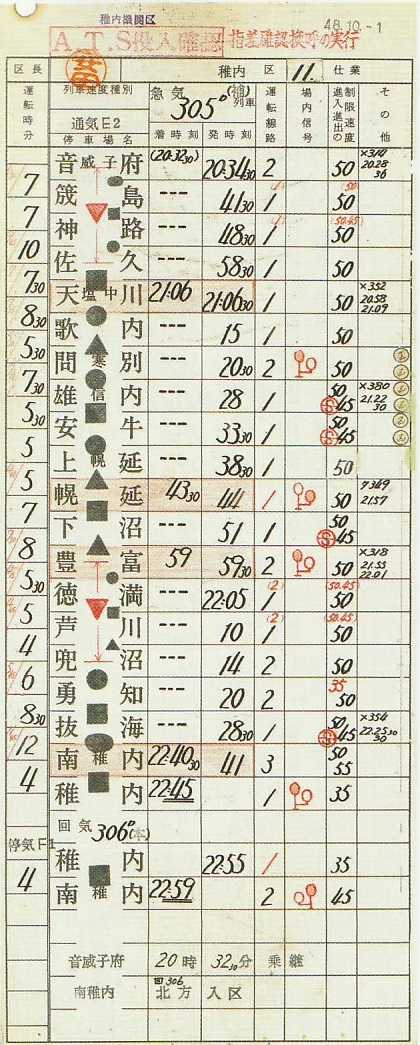 稚内機関区
48.10.-1
A.T.S投入確認 指差確認検呼の実行
区長 稚内 区 11. 仕業
運転時分 列車速度種別 急気 305D (補)列車 運転線路 場内信号 制限速度 進入進出の その他
通気E2
停車場名 着時刻 発時刻
音威子府 (20:32 30) 20:34 30 2 50 ×314 20.28 36
7
筬島 --- 41 30 (1) 1 50 50
7
神路 --- 48 30 (1) 1 (50.45) 50
10
佐久 --- 58 30 1 50
7 30
天塩中川 21:06 21:06 30 1 50 ×352 20.58 21.09
8 30
歌内 --- 15 1 50
5 30
問寒別 --- 20 30 2 50
7 30
雄信内 --- 28 1 50 45 ×380 21.22 30
5 30
安牛 --- 33 30 1 50 45
5
上幌延 --- 38 30 1 50
5
幌延 43 30 44 1 50 7349 21.57
7
下沼 --- 51 1 50 45
8
豊富 59 59 30 2 50 ×318 21.55 22.01
5 30
徳満 --- 22:05 (2) 1 (50.45) 50
5
芦川 --- 10 (2) 1 (50.45) 50
4
兜沼 --- 14 2 50
6
勇知 --- 20 2 35 50
8 30
抜海 --- 28 30 1 50 45 ×354 22.25 30 30
12
南稚内 22:40 30 41 3 50 55
4
稚内 22:45 1 35
回気 306D
停気F1
稚内 22:55 1 35
4
南稚内 22:59 2 45
音威子府 20時 32 30分 乗継
南稚内 回306 北方 入区